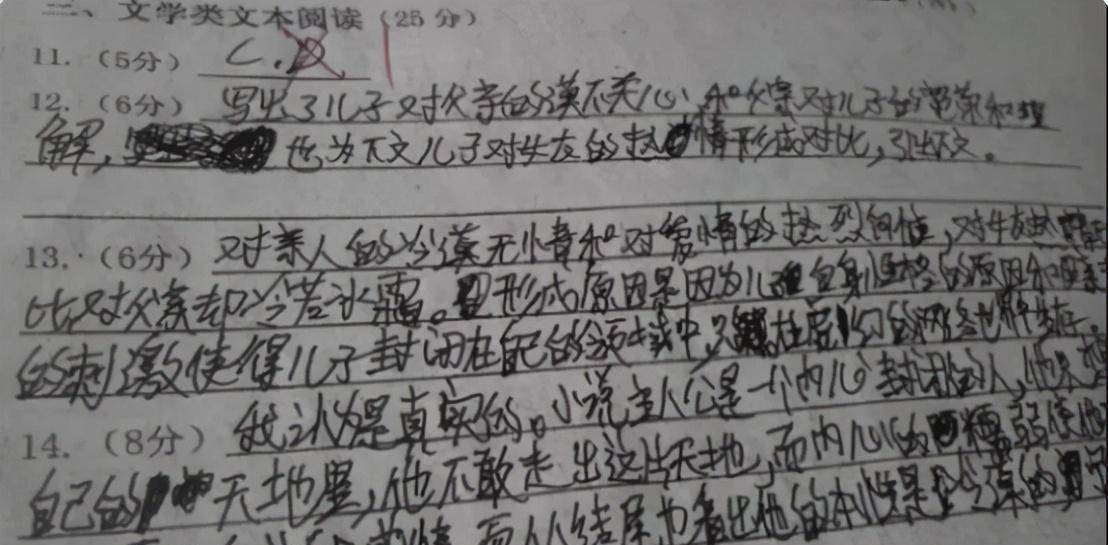 三、文学类文本阅读（25分）
11.（5分）C.D
12.（6分）写出了儿子对父亲的漠不关心，和父亲对儿子的
解，也为下文儿子对女友的热情形成对比，引出下文。
13.（6分）对亲人的冷漠无情和对爱情的热烈向往，对女友热
比对父亲却冷若冰霜。形成原因是因为儿自身性格的原因和
的刺激使得儿子封闭在自己的领域中，只
14.（8分）我认为是真实的。小说主人公是一个内心封闭的人，他
自己的天地里，他不敢走出这片天地，而内心的弱使他
情，而从结尾也看出他的本性是冷漠的